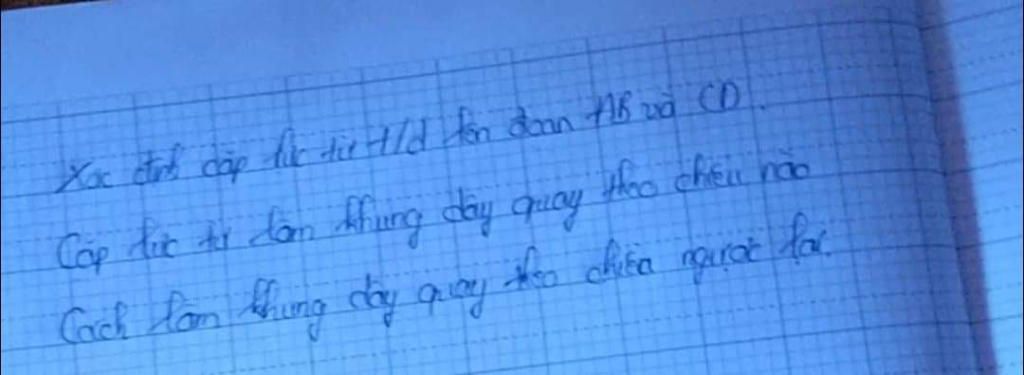 Xác định cặp lực từ t/d lên đoạn AB và CD.
Cặp lực từ làm khung dây quay theo chiều nào
Cách làm khung dây quay theo chiều ngược lại.